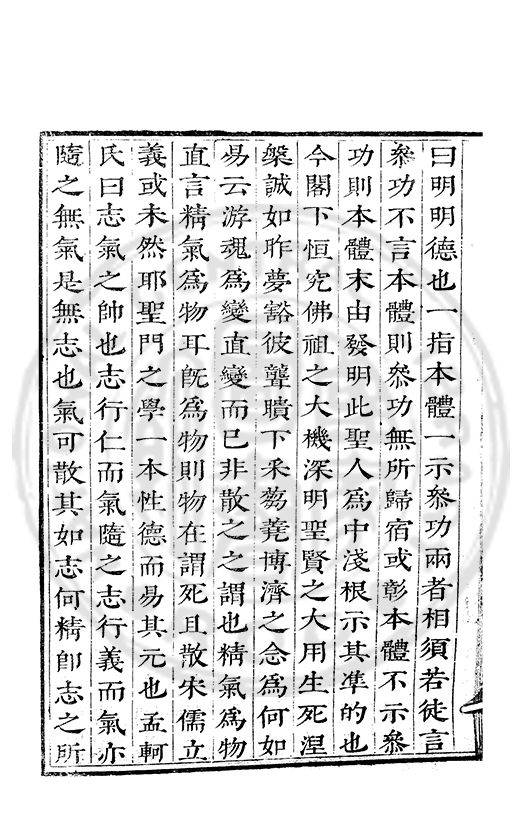 曰明明德也一指本體一示叅功兩者相須若徒言
叅功不言本體則叅功無所歸宿或彰本體不示叅
功則本體末由發明此聖人爲中淺根示其準的也
今閣下恒究佛祖之大機深明聖賢之大用生死涅
槃誠如昨夢豁彼聾瞶下采蒭蕘博濟之念爲何如
易云游魂爲變直變而已非散之之謂也精氣爲物
直言精氣爲物耳旣爲物則物在謂死且散宋儒立
義或未然耶聖門之學一本性德而易其元也孟軻
氏曰志氣之帥也志行仁而氣隨之志行義而氣亦
隨之無氣是無志也氣可散其如志何精卽志之所